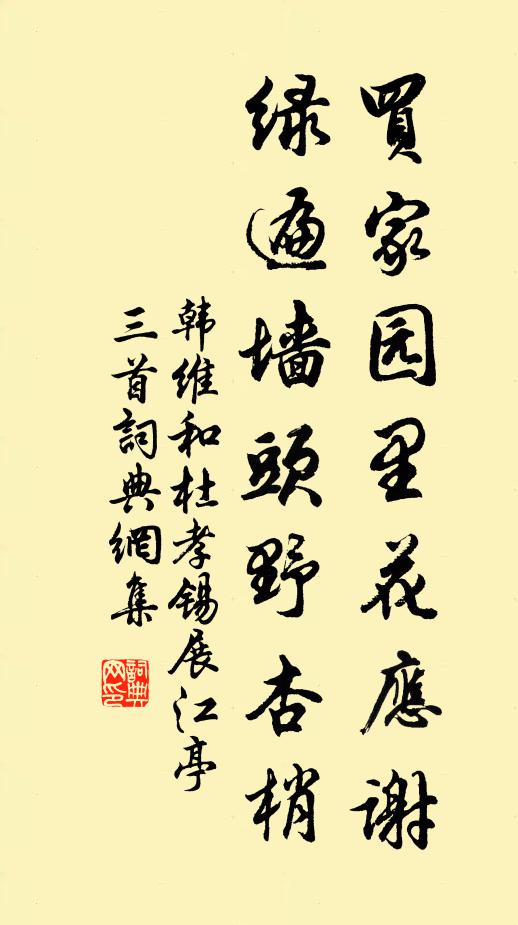 買家园里花應謝
绿遍墙頭野杏梢
韩維和杜孝锡展江亭
三首詞典網集
詞典网印